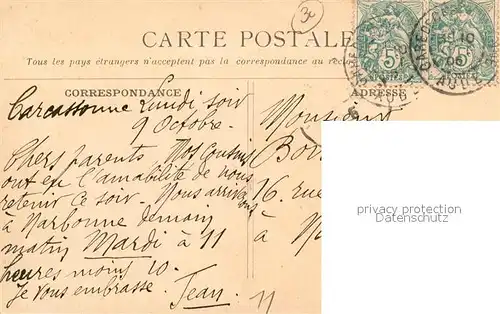 CARTE POSTALE
Tous les pays étrangers n'acceptent pas la correspondance au recto
CORRESPONDANCE
ADRESSE
Carcassonne Lundi soir
9 Octobre.
Chers parents, Nos cousins
ont eu l'amabilité de nous
retenir ce soir. Nous arrivons
à Narbonne demain
matin Mardi à 11
heures moins 10.
Je vous embrasse. Jean.
Monsieur
16, rue
à
11
5
5
privacy protection
Datenschutz